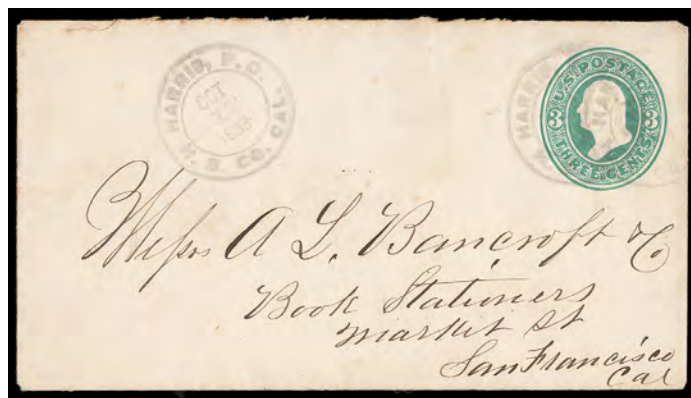 HARRIS, P.O.
OCT
1883
H. B. CO. CAL.
HARRIS
U.S. POSTAGE
3 3
THREE CENTS
Messrs A L. Bancroft & Co
Book Stationers
Market St
San Francisco
Cal